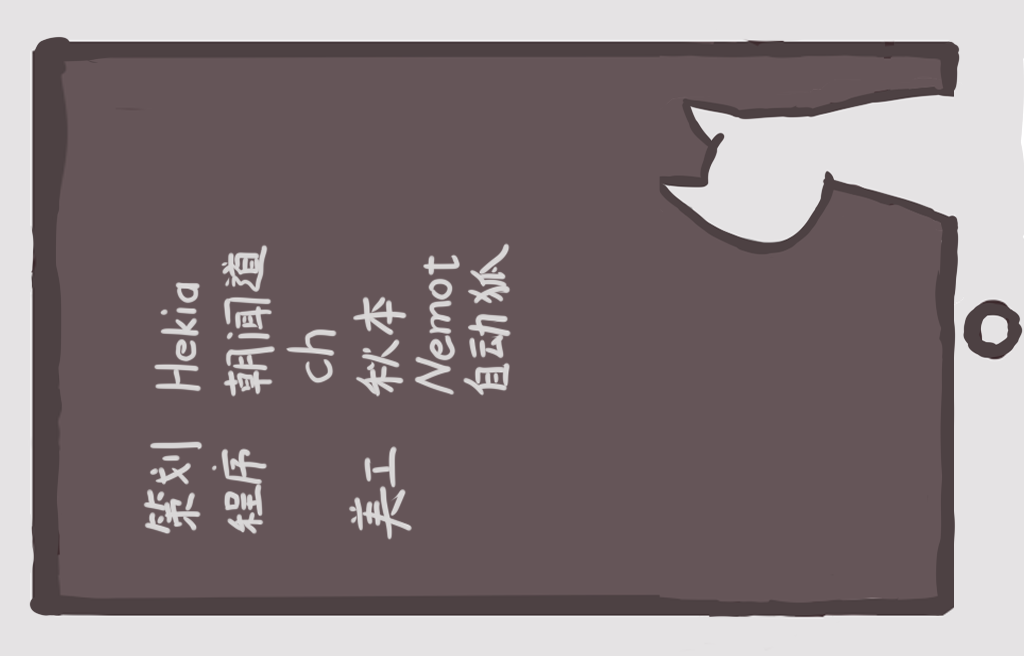 策划 Hekia
程序 朝闻道
ch
美工 秋本
Nemot
自动狐